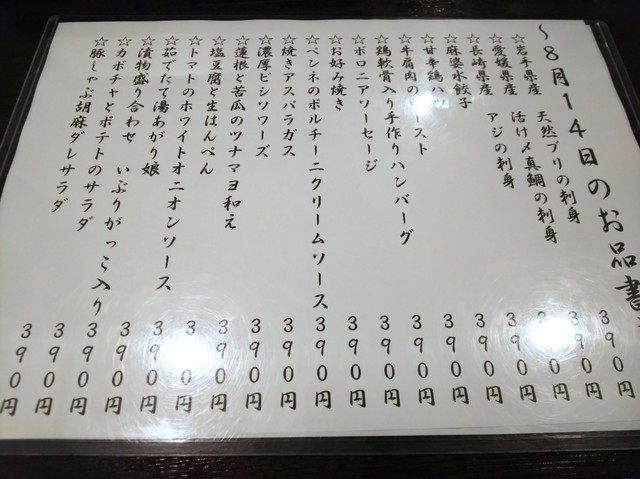 ～8月14日のお品書
☆岩手県産 天然ブリの刺身 390円
☆愛媛県産 活け〆真鯛の刺身 390円
☆長崎県産 アジの刺身 390円
☆麻婆水餃子 390円
☆甘辛鶏ハツ 390円
☆牛腐肉のロースト 390円
☆鶏軟骨入り手作りハンバーグ 390円
☆ボロニアソーセージ 390円
☆お好み焼き 390円
☆ペンネのポルチーニクリームソース 390円
☆焼きアスパラガス 390円
☆濃厚ビシソワーズ 390円
☆蓮根と苦瓜のツナマヨ和え 390円
☆塩豆腐と生はんぺん 390円
☆トマトのホワイトオニオンソース 390円
☆茹でたて湯あがり娘 390円
☆漬物盛り合わせ いぶりがっこ入り 390円
☆カボチャとポテトのサラダ 390円
☆豚しゃぶ胡麻ダレサラダ 390円